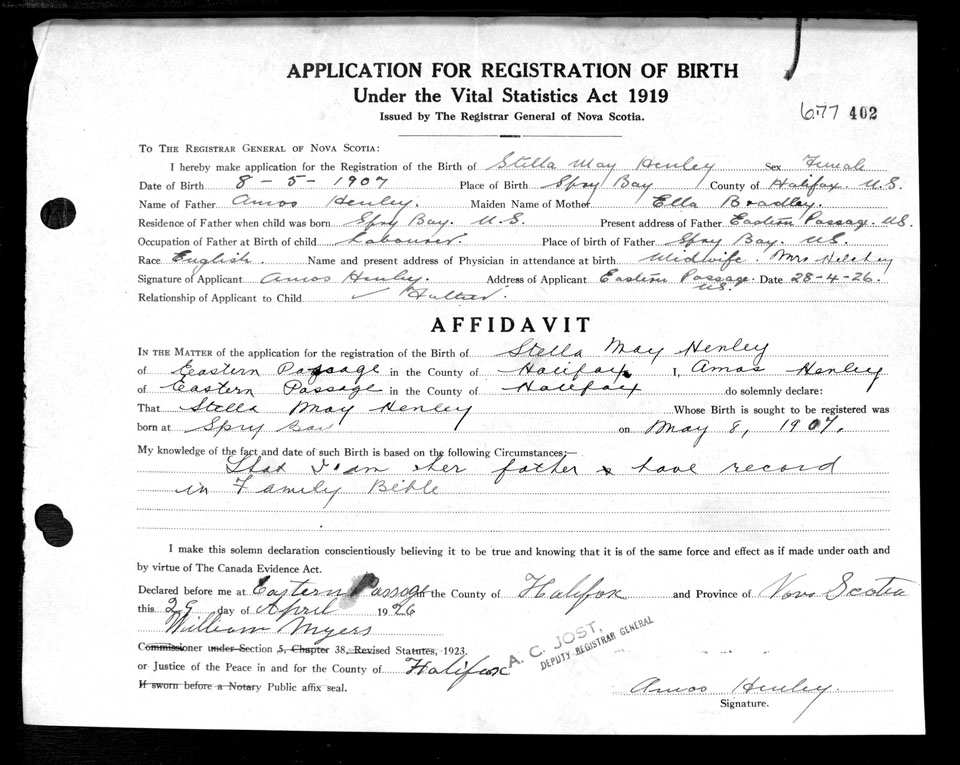 APPLICATION FOR REGISTRATION OF BIRTH
Under the Vital Statistics Act 1919
Issued by The Registrar General of Nova Scotia.
677 402
TO THE REGISTRAR GENERAL OF NOVA SCOTIA:
I hereby make application for the Registration of the Birth of Stella May Henley Sex Female
Date of Birth 8-5-1907 Place of Birth Spry Bay County of Halifax. N.S.
Name of Father Amos Henley. Maiden Name of Mother Ella Bradley.
Residence of Father when child was born Spry Bay. N.S. Present address of Father Eastern Passage. N.S.
Occupation of Father at Birth of child Labourer. Place of birth of Father Spry Bay. N.S.
Race English. Name and present address of Physician in attendance at birth Midwife. Mrs
Signature of Applicant Amos Henley. Address of Applicant Eastern Passage. N.S. Date 28-4-26.
Relationship of Applicant to Child Father.
AFFIDAVIT
IN THE MATTER of the application for the registration of the Birth of Stella May Henley
of Eastern Passage in the County of Halifax. I, Amos Henley
of Eastern Passage in the County of Halifax do solemnly declare:
That Stella May Henley Whose Birth is sought to be registered was
born at Spry Bay on May 8, 1907.
My knowledge of the fact and date of such Birth is based on the following Circumstances:—
That I am her father & have record
in Family Bible
I make this solemn declaration conscientiously believing it to be true and knowing that it is of the same force and effect as if made under oath and
by virtue of The Canada Evidence Act.
Declared before me at Eastern Passage in the County of Halifax and Province of Nova Scotia
this 29 day of April 1926
William Myers
Commissioner under Section 5, Chapter 38, Revised Statutes, 1923.
or Justice of the Peace in and for the County of Halifax
A. C. JOST,
DEPUTY REGISTRAR GENERAL
If sworn before a Notary Public affix seal.
Amos Henley.
Signature.